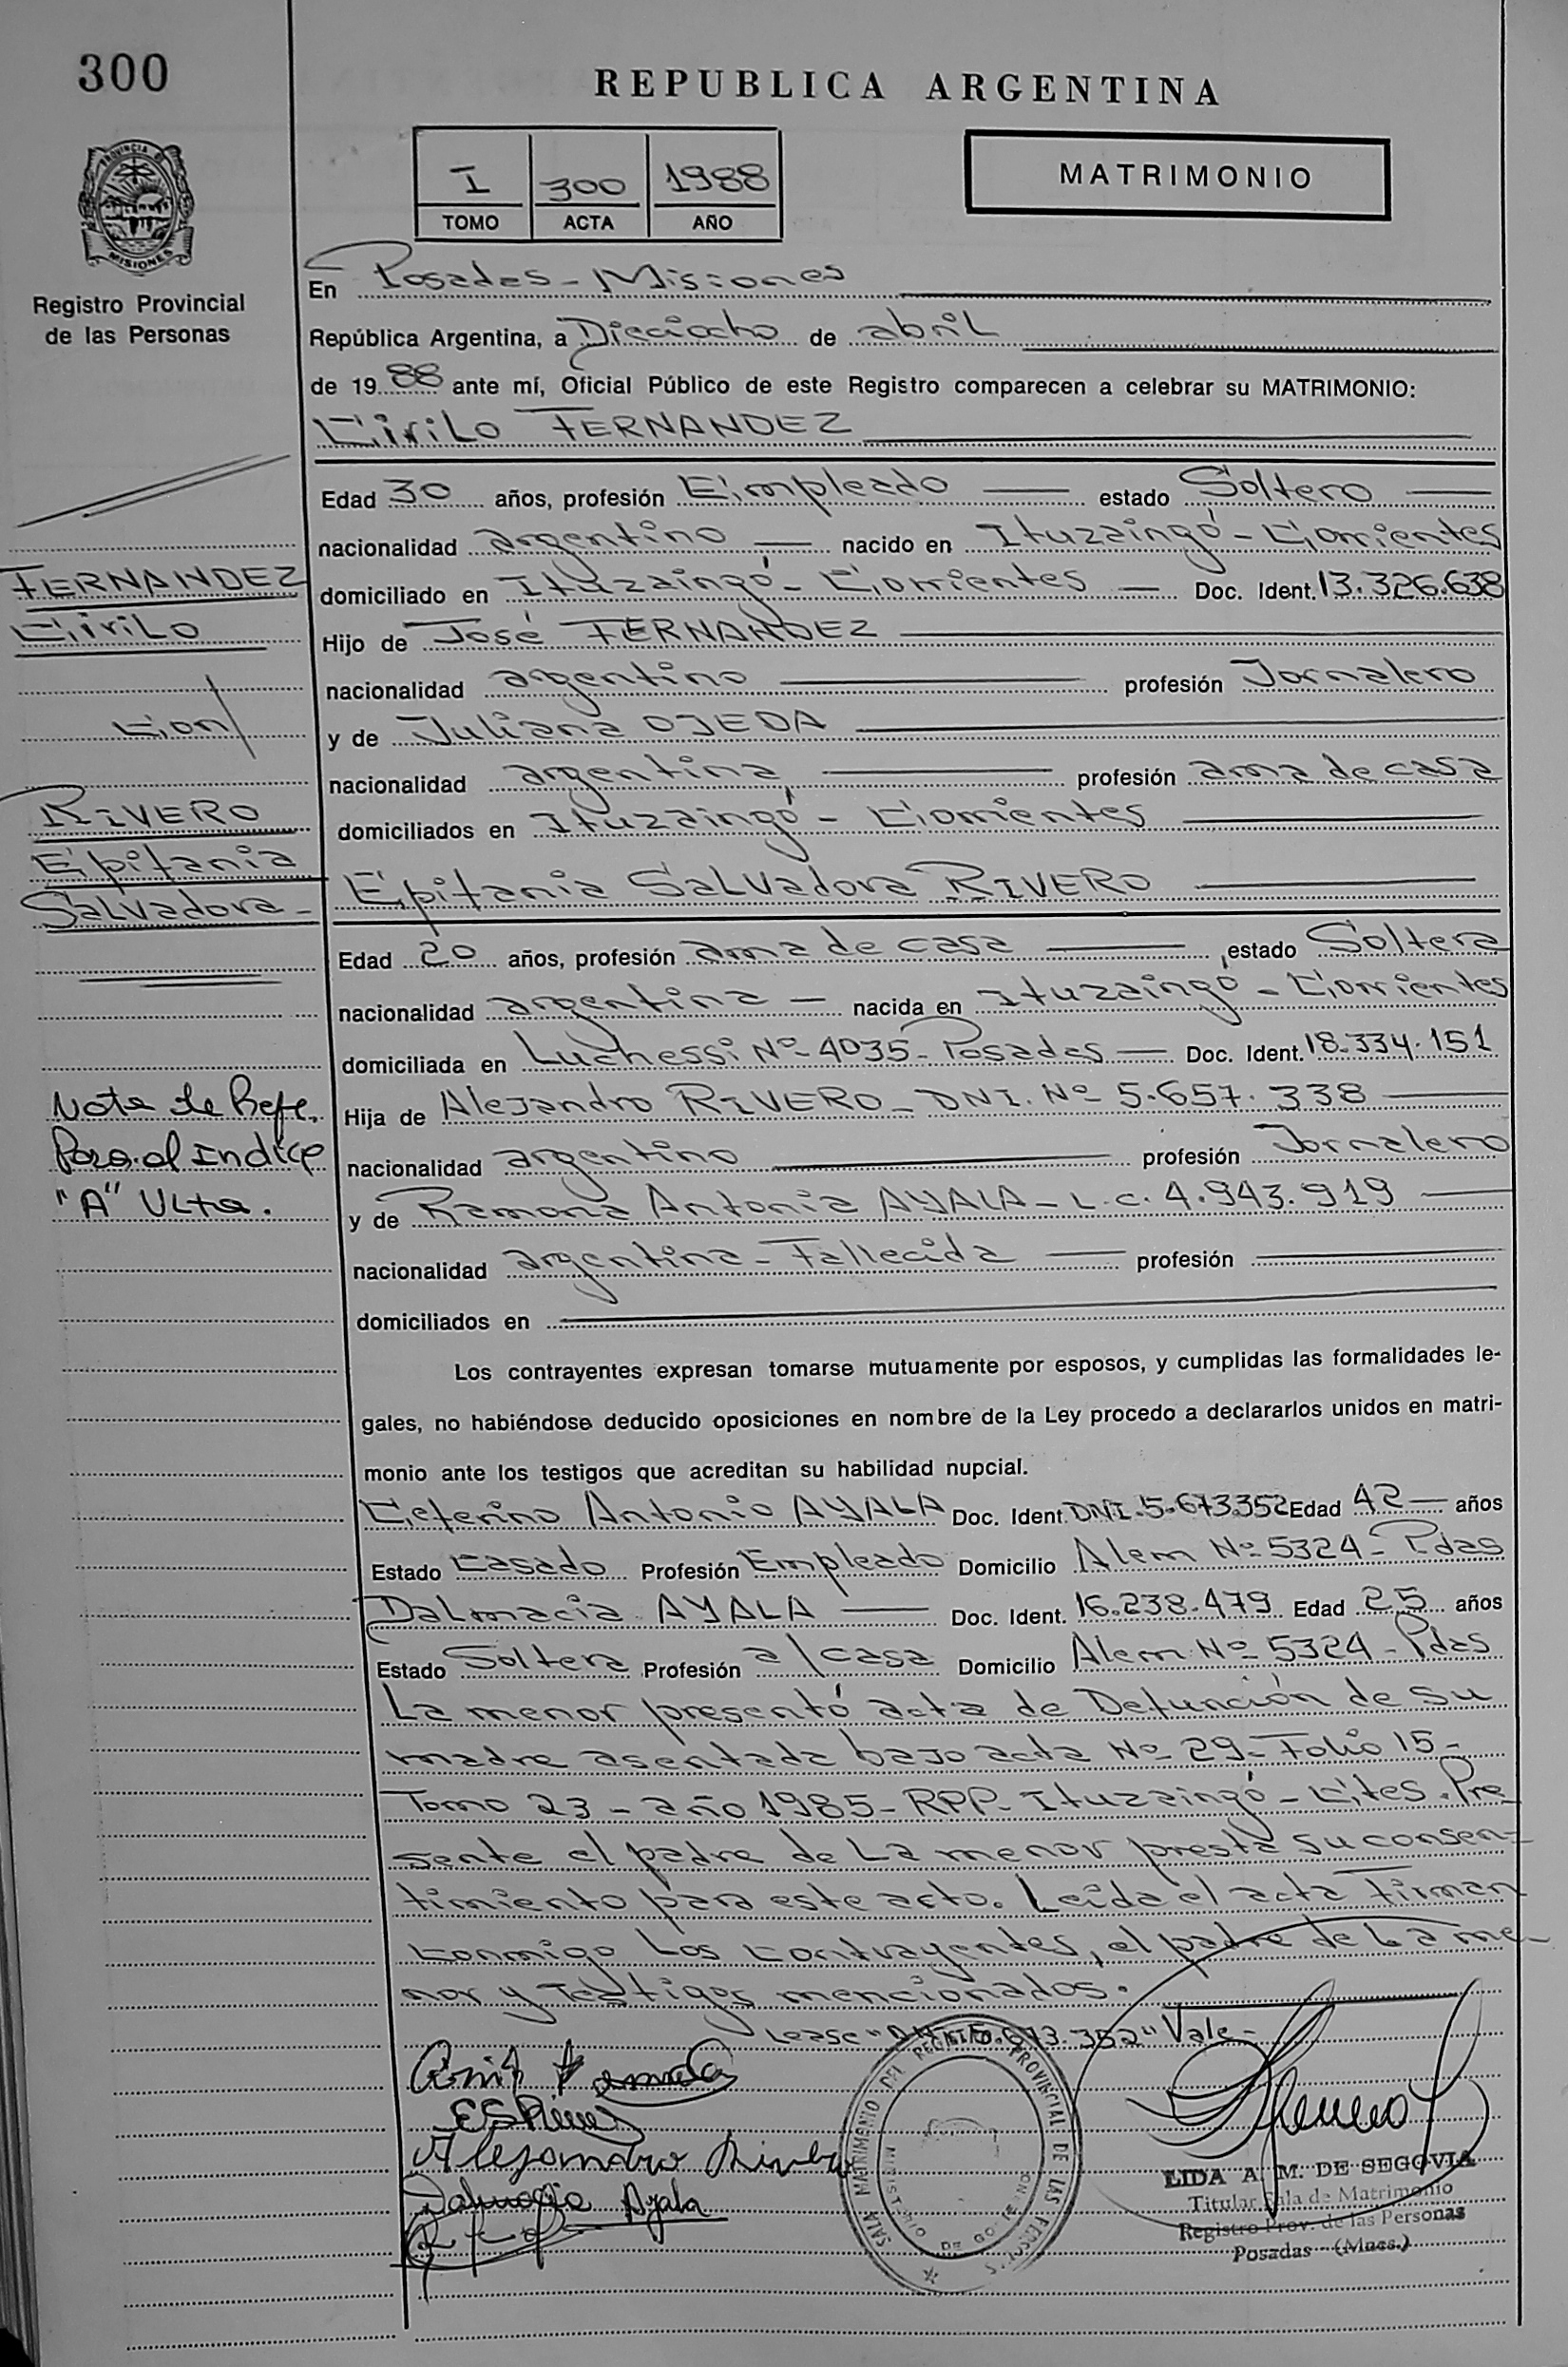 300
REPUBLICA ARGENTINA
I 300 1988
TOMO ACTA AÑO
MATRIMONIO
PROVINCIA DE
MISIONES
Registro Provincial
de las Personas
En Posadas - Misiones
República Argentina, a Dieciocho de abril
de 1988 ante mí, Oficial Público de este Registro comparecen a celebrar su MATRIMONIO:
Cirilo FERNANDEZ
Edad 30 años, profesión Empleado estado Soltero
nacionalidad argentino nacido en Ituzaingó - Corrientes
domiciliado en Ituzaingó - Corrientes Doc. Ident. 13.326.638
Hijo de José FERNANDEZ
nacionalidad argentino profesión Jornalero
y de Juliana OJEDA
nacionalidad argentina profesión ama de casa
domiciliados en Ituzaingó - Corrientes
FERNANDEZ
Cirilo
Con/
RIVERO
Epifania
Salvadora -
Epifania Salvadora RIVERO
Edad 20 años, profesión ama de casa , estado Soltera
nacionalidad argentina nacida en Ituzaingó - Corrientes
domiciliada en Luchessi Nº 4035 - Posadas Doc. Ident. 18.334.151
Hija de Alejandro RIVERO - DNI. Nº 5.657.338
nacionalidad argentino profesión Jornalero
y de Ramona Antonia AYALA - L.C. 4.943.919
nacionalidad argentina - Fallecida profesión
domiciliados en
Nota de Refe.
Para el Indice
"A" Ulta.
Los contrayentes expresan tomarse mutuamente por esposos, y cumplidas las formalidades le-
gales, no habiéndose deducido oposiciones en nombre de la Ley procedo a declararlos unidos en matri-
monio ante los testigos que acreditan su habilidad nupcial.
Ceferino Antonio AYALA Doc. Ident. DNI. 5.673.352 Edad 42 años
Estado Casado Profesión Empleado Domicilio Alem Nº 5324 - Pdas
Dalmacia AYALA Doc. Ident. 16.238.479 Edad 25 años
Estado Soltera Profesión a/casa Domicilio Alem Nº 5324 - Pdas
La menor presentó acta de Defunción de su
madre asentada bajo acta Nº 29 - Folio 15 -
Tomo 23 - año 1985 - RPP. Ituzaingó - Ctes. Pre
sente el padre de La menor presta su consen-
timiento para este acto. Leída el acta Firman
conmigo Los contrayentes, el padre de La me-
nor y Testigos mencionados.
Lease "DNI 5.673.352" Vale -
Alejandro Rivero
Dalmacia Ayala
SALA MATRIMONIO DEL REGISTRO PROVINCIAL DE LAS PERSONAS
MINISTERIO DE GOBIERNO
LIDA A. M. DE SEGOVIA
Titular Sala de Matrimonio
Registro Prov. de las Personas
Posadas - (Mnes.)